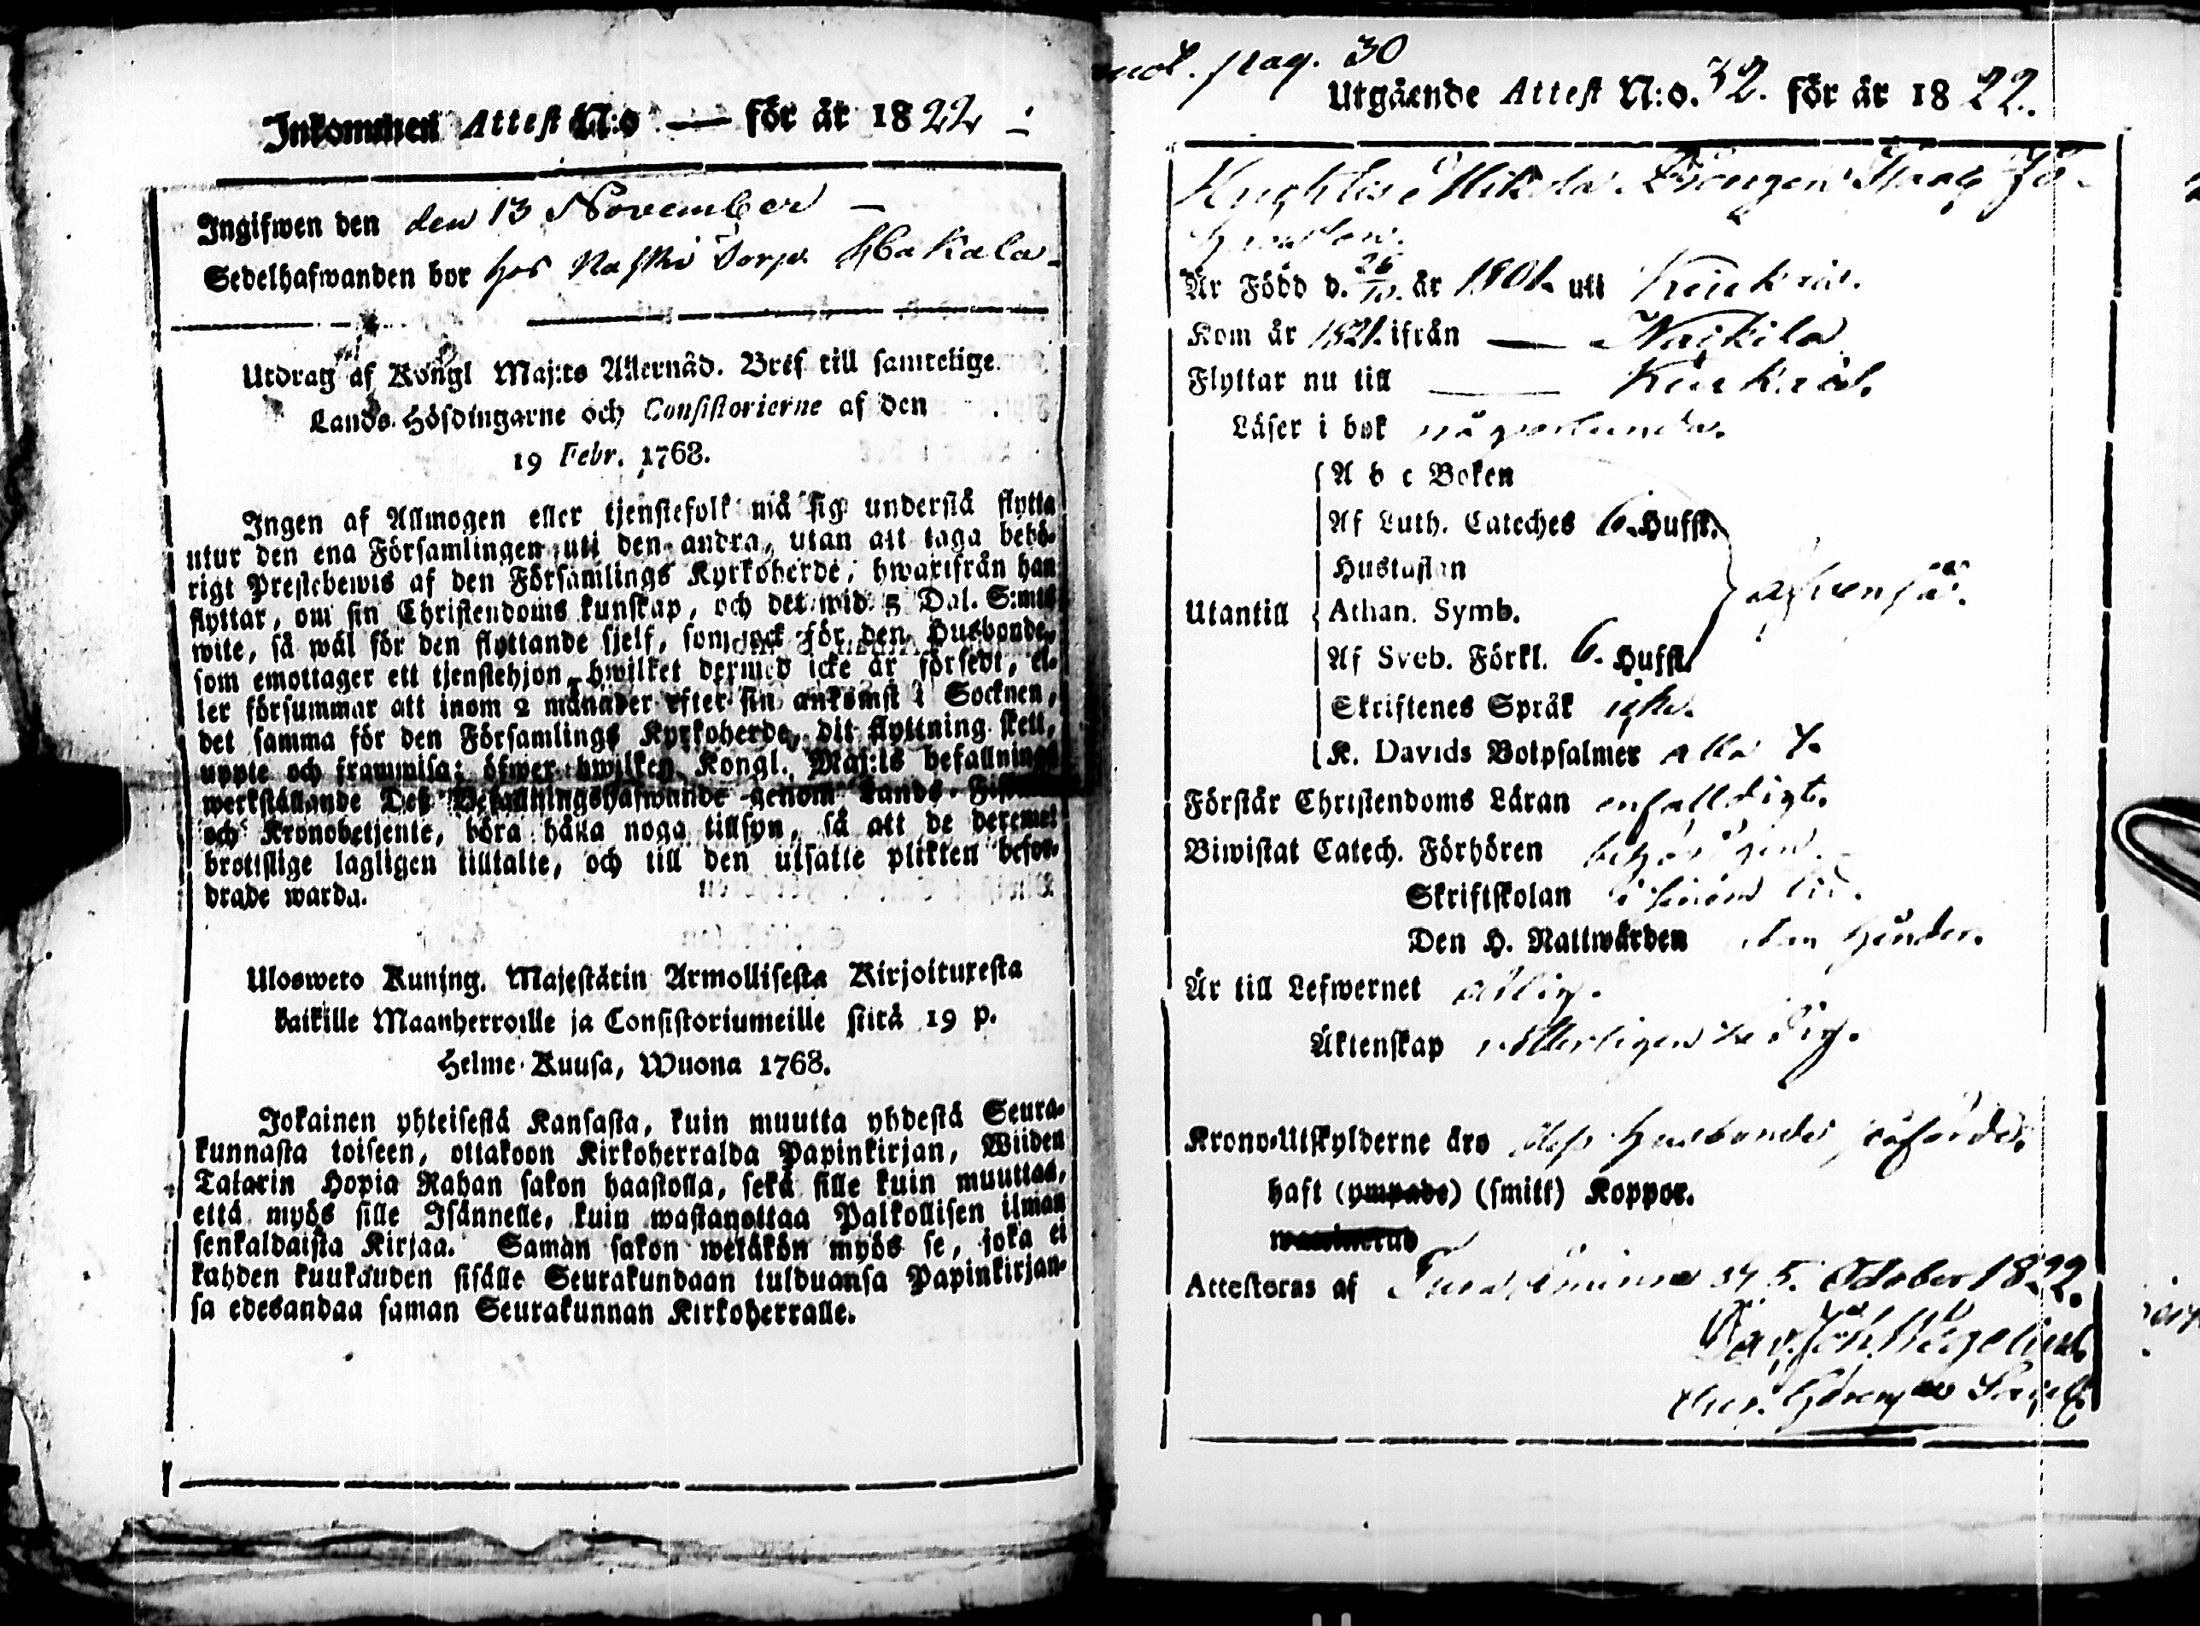 Inkommen Attest N:o — för år 1822
Ingifwen den den 13 November —
Sedelhafwanden bor hos Torp. Hakala
Utdrag af Kongl Maj:ts Allernåd. Bref till samtelige
Lands-Höfdingarne och Consistorierne af den
19 Febr. 1768.
Ingen af Allmogen eller tjenstefolk må sig understå flytta
utur den ena Församlingen uti den andra, utan att taga behö-
rigt Prestebewis af den Församlings Kyrkoherde, hwarifrån han
flyttar, om sin Christendoms kunskap, och det wid 5 Dal. S:mts
wite, så wäl för den flyttande sjelf, som ock för den Husbonde,
som emottager ett tjenstehjon hwilket dermed icke är försedt, el-
ler försummar att inom 2 månader efter sin ankomst i Socknen,
det samma för den Församlings Kyrkoherde, dit flyttning skett,
uppte och framwisa; öfwer hwilken Kongl. Maj:ts befallnings
werkställande Deß Befallningshafwande genom Lands-
och Kronobetjente, böra hålla noga tillsyn, så att de deremot
brottslige lagligen tilltalte, och till den utsatte plikten befor-
drade warda.
Uloswero Kuning. Majestätin Armollisesta Kirjoituxesta
kaikille Maanherroille ja Consistoriumeille siitä 19 p.
Helme-Kuusa, Wuona 1768.
Jokainen yhteisestä Kansasta, kuin muutta yhdestä Seura-
kunnasta toiseen, ottakoon Kirkoherralda Papinkirjan, Wiiden
Talarin Hopia Rahan sakon haastolla, sekä sille kuin muuttaa,
että myös sille Isännelle, kuin wastanottaa Palkollisen ilman
senkaldaista Kirjaa. Saman sakon wetäkön myös se, joka ei
kahden kuukauden sisälle Seurakundaan tulduansa Papinkirjan-
sa edesandaa saman Seurakunnan Kirkoherralle.
pag. 30
Utgående Attest N:o. 32. för år 1822.
Drengen
Är Född d. 26/10. år 1801. uti
Kom år 1821. ifrån —
Flyttar nu till —
Läser i bok någorlunda.
A b c Boken
Af Luth. Cateches 6. Hufst.
Hustaflan
Utantill Athan. Symb.
Af Sveb. Förkl. 6. Hufst.
Skriftenes Språk
K. Davids Botpsalmer alla 7.
Förstår Christendoms Läran enfaldigt.
Biwistat Catech. Förhören behörigen.
Skriftskolan i sinom tid.
Den H. Nattwärden utan hinder.
Är till Lefwernet ärlig.
Äktenskap ledig.
Krono-Utskylderne äro Husbonde
haft (ympade) (smitt) Koppor.
Attesteras af 5. October 1822.